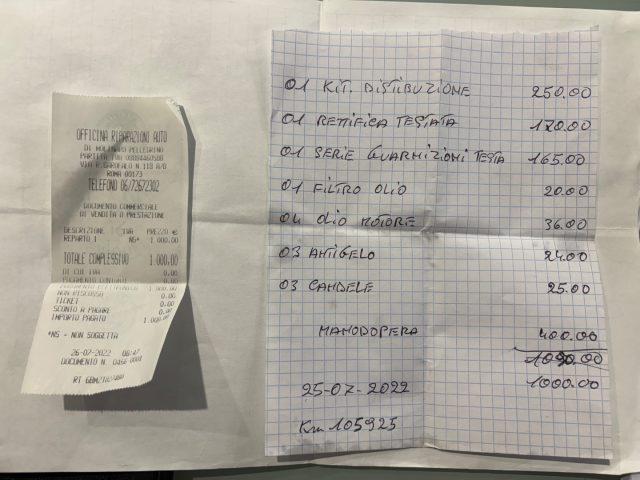 OFFICINA RIPARAZIONI AUTO
DI MOLINARO PELLEGRINO
PARTITA IVA
VIA R.GAROFALO N.118 A/B
ROMA 00173
TELEFONO 06/72672302
DOCUMENTO COMMERCIALE
DI VENDITA O PRESTAZIONE
DESCRIZIONE IVA PREZZO €
REPARTO 1 NS* 1 000.00
TOTALE COMPLESSIVO 1 000.00
DI CUI IVA 0.00
PAGAMENTO CONTANTE 0.00
PAGAMENTO ELETTRONICO 1 000.00
NON RISCOSSO 0.00
TICKET 0.00
SCONTO A PAGARE 0.00
IMPORTO PAGATO 1 000.00
*NS - NON SOGGETTA
26-07-2022 08:47
DOCUMENTO N. 0466-0001
RT
01 KIT. DISTIBUZIONE 250.00
01 RETTIFICA TESTATA 170.00
01 SERIE GUARNIZIONI TESTA 165.00
01 FILTRO OLIO 20.00
04 OLIO MOTORE 36.00
03 ANTIGELO 24.00
03 CANDELE 25.00
MANODOPERA 400.00
1090.00
25-07-2022 1000.00
Km 105925